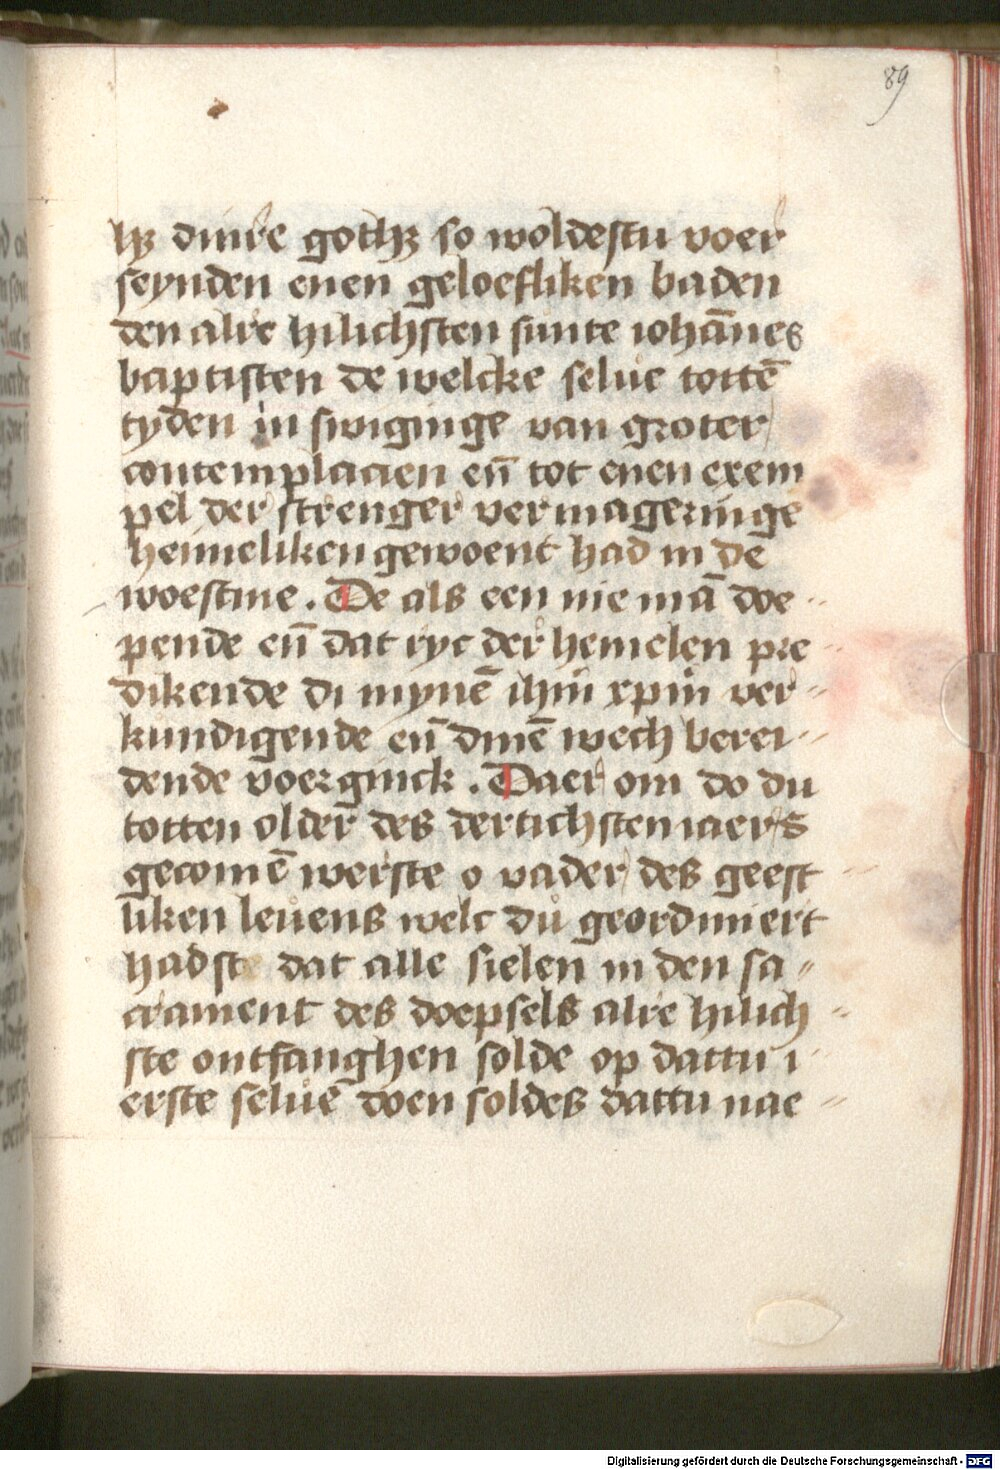 89
hꝫ dinre gothꝫ so woldestu voer
seynden enen geloefliken baden
den alre hilichsten sunte iohānes
baptisten de welcke seluē totte
tyden in swiginge van groter
contemplacien eñ tot enen exem
pel der strenger vermageringe
heimeliken gewoent had in de
woestine . De als een nie mā doe
pende eñ dat ryc der hemelen pre
dikende di mynē ihm xpm ver
kundigende eñ dinē wech berei
dende voerginck . Daer om do du
totten older des dertichsten iaers
gecomē werste o vader des geest
liken leuens welc du geordiniert
hadste dat alle sielen in den sa
crament des doepsels alre hilich
ste ontfanghen solde op dattu i
erste seluē doen soldes dattu nae
Digitalisierung gefördert durch die Deutsche Forschungsgemeinschaft - DFG